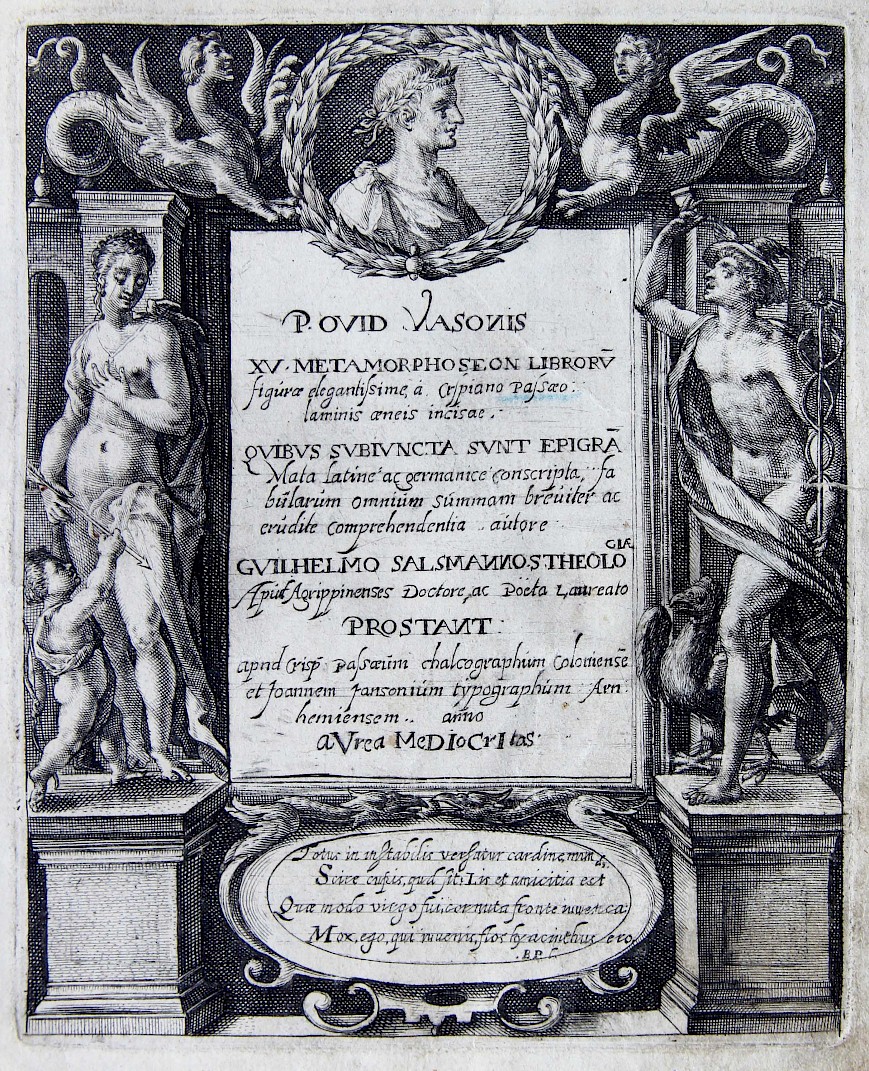 P. OVID NASONIS
XV. METAMORPHOSEON LIBRORV̄
figúræ elegantissime, à Crispiano Passæo.
laminis æneis incisæ.
QVIBVS SVBIVNCTA SVNT EPIGRĀ
Mata latine ac germanice conscripta, fa
búlarúm omniúm súmmam breúiter ac
erúdite comprehendentia .. aútore
GVILHELMO SALSMANNO.S.THEOLOGIÆ
Apúd Agrippinenses Doctore, ac Poëta Laureato
PROSTANT.
apúd Crisp. Passæúm chalcographúm Coloniensē
et Joannem Jansoniúm typographúm Arn:
hemiensem.. anno
aVrea MeDIoCrItas
Totus in instabilis versatur cardine mund
Scire cupis, quid sit: Lis et amicitia est
Quæ modo virgo fui, cornuta fronte iuvenca
Mox, ego, qui iuuenis, flos hyacinthus ero